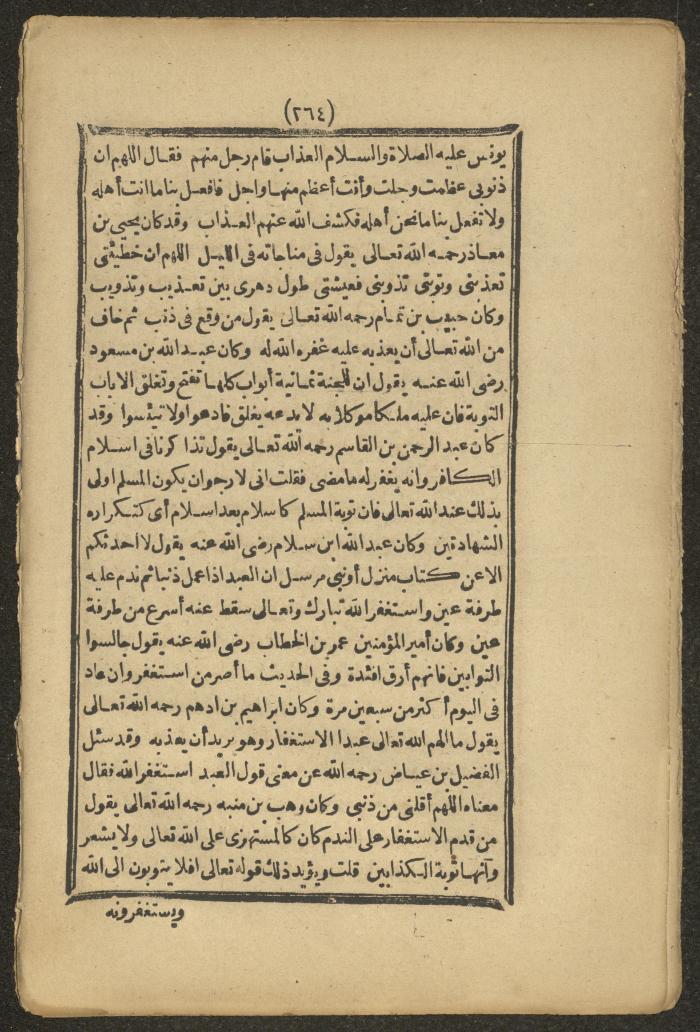 (٢٦٤)
يونس عليه الصلاة والسلام العذاب قام رجل منهم فقال اللهم ان
ذنوبى عظامت وجلت وأنت أعظم منها واجل فافعل بنا ما انت أهله
ولا تفعل بنا ما نحن أهله فكشف الله عنهم العذاب وقد كان يحيى بن
معاذ رحمه الله تعالى يقول فى مناجاته فى الليل اللهم ان خطيئتى
تعذبنى وتوبتى تذوبنى فعيشتى طول دهرى بين تعذيب وتذويب
وكان حبيب بن تمام رحمه الله تعالى يقول من وقع فى ذنب ثم خاف
من الله تعالى أن يعذبه عليه غفره الله له وكان عبد الله بن مسعود
رضى الله عنه يقول ان للجنة ثمانية أبواب كلها تفتح وتغلق الا باب
التوبة فان عليه ملكا موكلا به لا يدعه يغلق فادعوا ولا تيئسوا وقد
كان عبد الرحمن بن القاسم رحمه الله تعالى يقول تذاكرنا فى اسلام
الكافر وانه يغفر له ما مضى فقلت انى لارجو ان يكون المسلم اولى
بذلك عند الله تعالى فان توبة المسلم كاسلام بعد اسلام أى كتكراره
الشهادتين وكان عبد الله ابن سلام رضى الله عنه يقول لا أحدثكم
الا عن كتاب منزل أو نبى مرسل ان العبد اذا عمل ذنبا ثم ندم عليه
طرفة عين واستغفر الله تبارك وتعالى سقط عنه أسرع من طرفة
عين وكان أمير المؤمنين عمر بن الخطاب رضى الله عنه يقول جالسوا
التوابين فانهم أرق افئدة وفى الحديث ما أصر من استغفر وان عاد
فى اليوم أكثر من سبعين مرة وكان ابراهيم بن ادهم رحمه الله تعالى
يقول ما الهم الله تعالى عبدا الاستغفار وهو يريد أن يعذبه وقد سئل
الفضيل بن عياض رحمه الله عن معنى قول العبد استغفر الله فقال
معناه اللهم أقلنى من ذنبي وكان وهب بن منبه رحمه الله تعالى يقول
من قدم الاستغفار على الندم كان كالمستهزى على الله تعالى ولا يشعر
وانها توبة الكذابين قلت ويؤيد ذلك قوله تعالى افلا يتوبون الى الله
ويستغفرونه